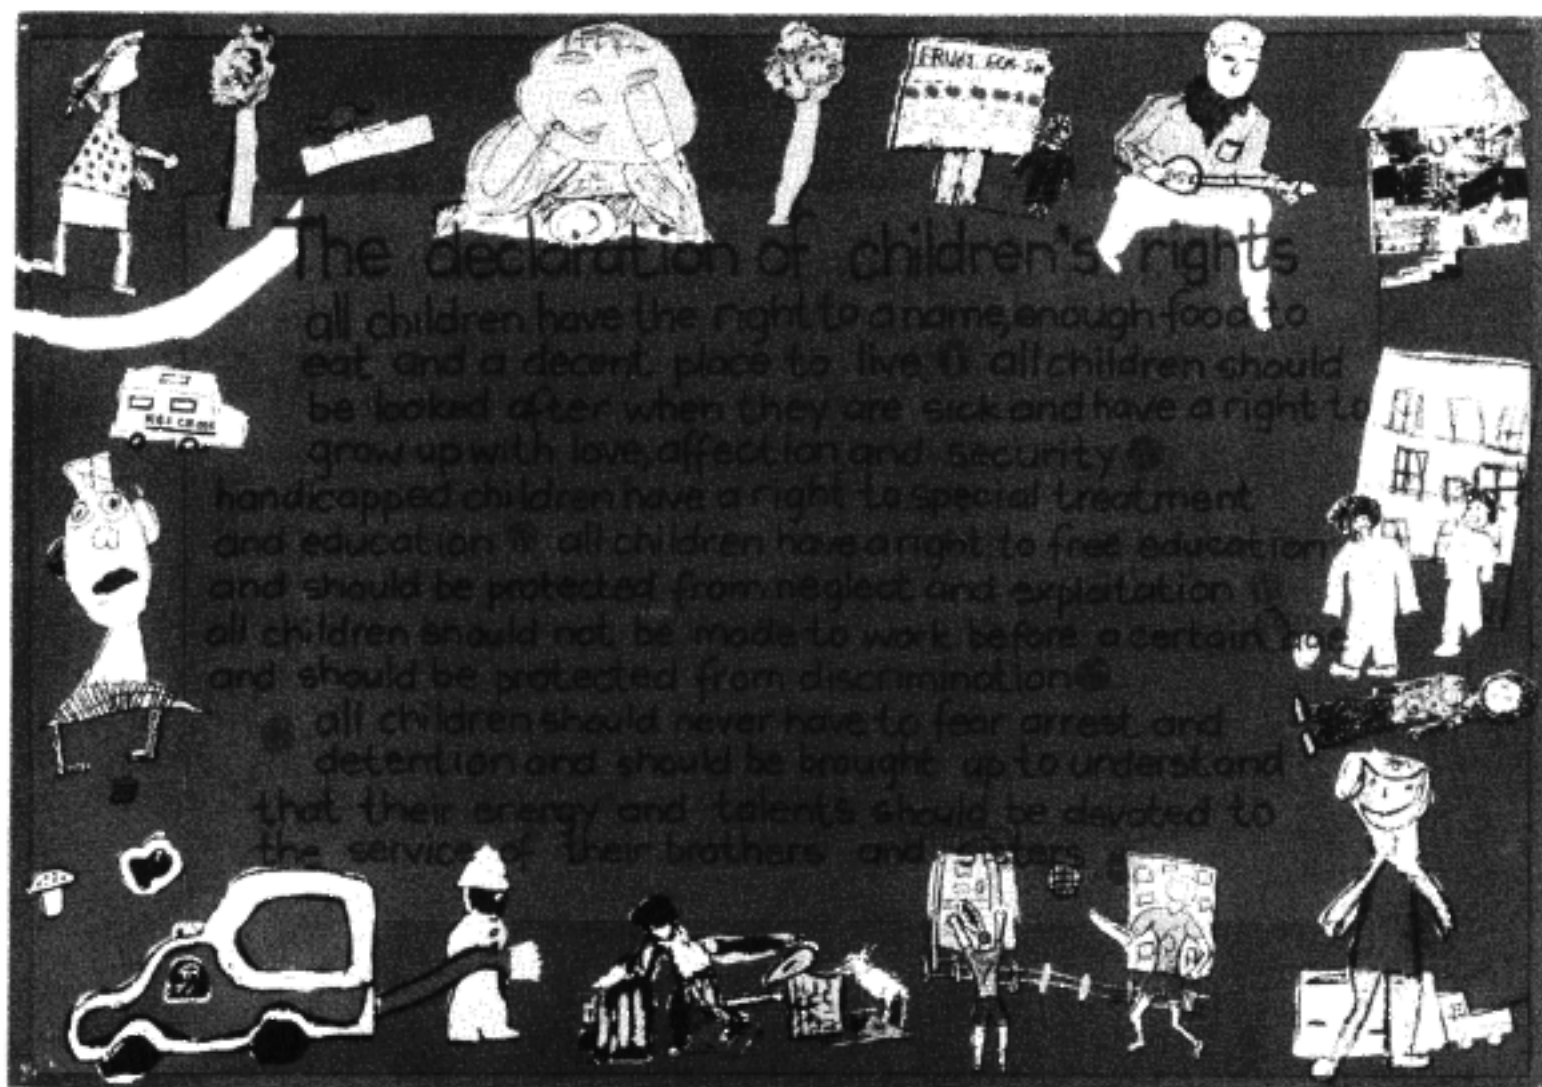 FRUIT FOR
The declaration of children's rights
all children have the right to a name, enough food to
eat and a decent place to live all children should
be looked after when they are sick and have a right to
grow up with love, affection and security
handicapped children have a right to special treatment
and education all children have a right to free education
and should be protected from neglect and exploitation
all children should not be made to work before a certain age
and should be protected from discrimination
all children should never have to fear arrest and
detention and should be brought up to understand
that their energy and talents should be devoted to
the service of their brothers and sisters